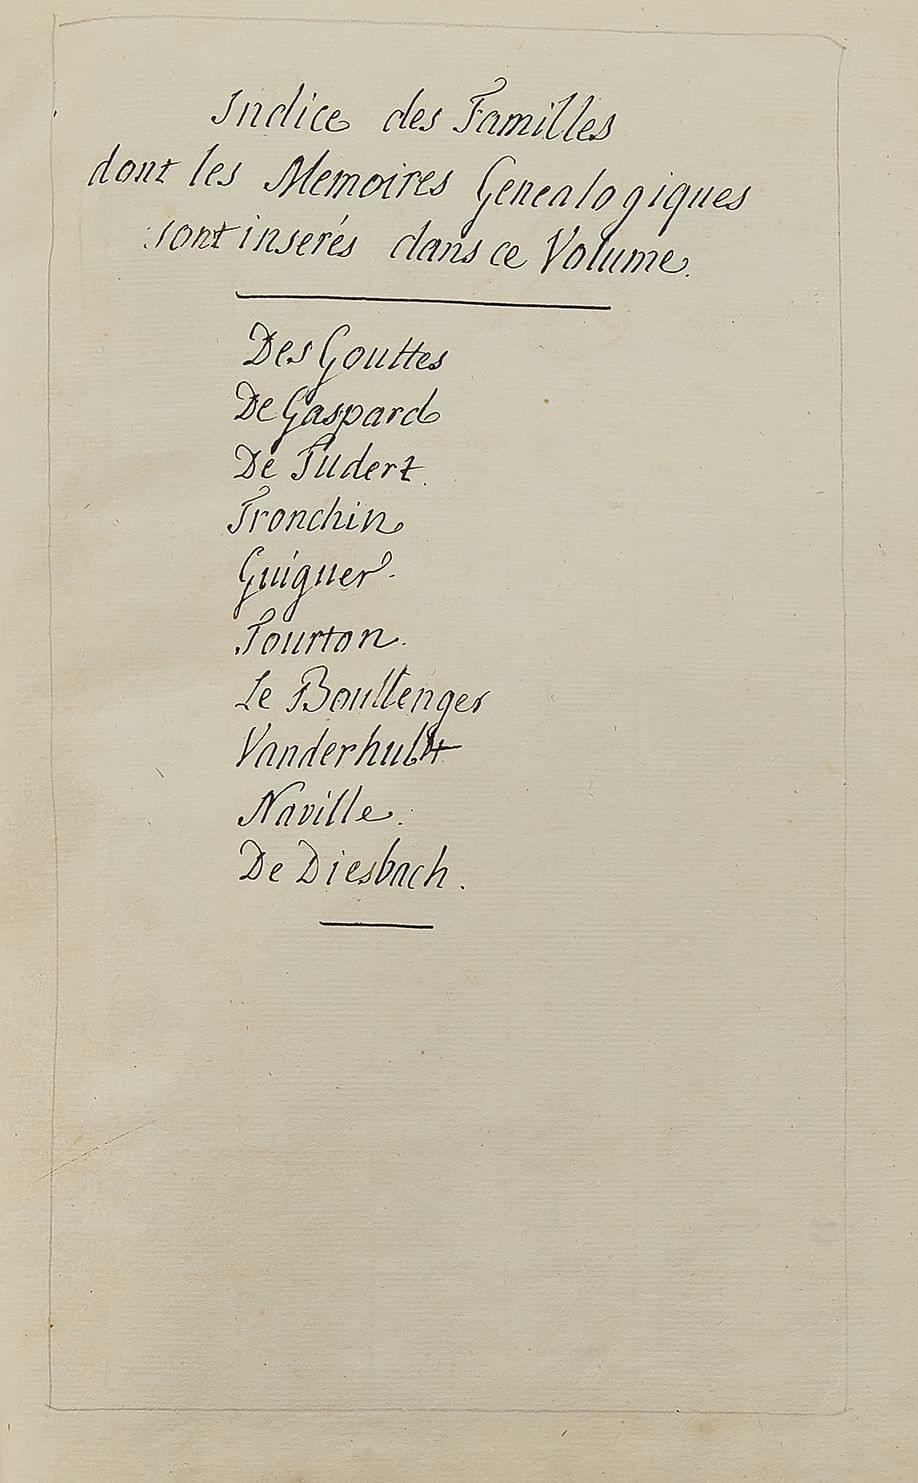 Indice des Familles
dont les Memoires Genealogiques
sont inserés dans ce Volume.
Des Gouttes
De Gaspard
De Tudert.
Tronchin
Guiguer.
Tourton.
Le Boullenger
Vanderhulst
Naville.
De Diesbach.